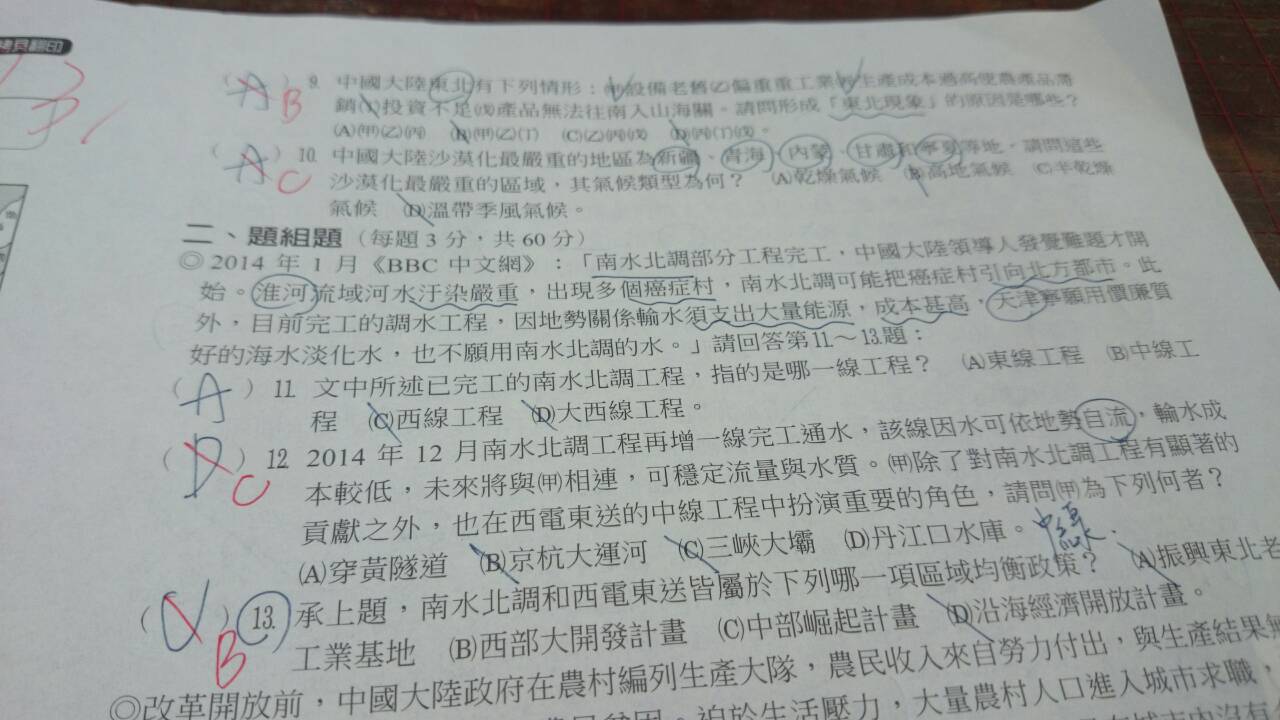 拷貝翻印
(A) B 9. 中國大陸東北有下列情形：㈠設備老舊㈡偏重重工業㈢生產成本過高使農產品滯
銷㈣投資不足㈤產品無法往南入山海關。請問形成「東北現象」的原因是哪些？
(A)㈠㈡㈢ (B)㈠㈡㈣ (C)㈡㈢㈤ (D)㈢㈣㈤。
(A) C 10. 中國大陸沙漠化最嚴重的地區為新疆、青海、內蒙、甘肅和寧夏等地。請問這些
沙漠化最嚴重的區域，其氣候類型為何？ (A)乾燥氣候 (B)高地氣候 (C)半乾燥
氣候 (D)溫帶季風氣候。
二、題組題（每題 3 分，共 60 分）
◎2014 年 1 月《BBC 中文網》：「南水北調部分工程完工，中國大陸領導人發覺難題才開
始。淮河流域河水汙染嚴重，出現多個癌症村，南水北調可能把癌症村引向北方都市。此
外，目前完工的調水工程，因地勢關係輸水須支出大量能源，成本甚高，天津寧願用價廉質
好的海水淡化水，也不願用南水北調的水。」請回答第11.～13.題：
(A) 11. 文中所述已完工的南水北調工程，指的是哪一線工程？ (A)東線工程 (B)中線工
程 (C)西線工程 (D)大西線工程。
(D) C 12. 2014 年 12 月南水北調工程再增一線完工通水，該線因水可依地勢自流，輸水成
本較低，未來將與㈙相連，可穩定流量與水質。㈙除了對南水北調工程有顯著的
貢獻之外，也在西電東送的中線工程中扮演重要的角色，請問㈙為下列何者？
(A)穿黃隧道 (B)京杭大運河 (C)三峽大壩 (D)丹江口水庫。 中線
( ) B 13. 承上題，南水北調和西電東送皆屬於下列哪一項區域均衡政策？ (A)振興東北老
工業基地 (B)西部大開發計畫 (C)中部崛起計畫 (D)沿海經濟開放計畫。
◎改革開放前，中國大陸政府在農村編列生產大隊，農民收入來自勞力付出，與生產結果無
迫於生活壓力，大量農村人口進入城市求職，